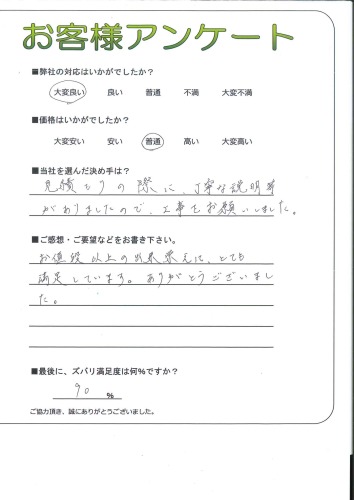 お客様アンケート
■弊社の対応はいかがでしたか?
大変良い 良い 普通 不満 大変不満
■価格はいかがでしたか?
大変安い 安い 普通 高い 大変高い
■当社を選んだ決め手は?
見積もりの際に、丁寧な説明等
がありましたので、工事をお願いしました。
■ご感想・ご要望などをお書き下さい。
お値段以上の出来栄えに、とても
満足しています。ありがとうございまし
た。
■最後に、ズバリ満足度は何%ですか?
90 %
ご協力頂き、誠にありがとうございました。